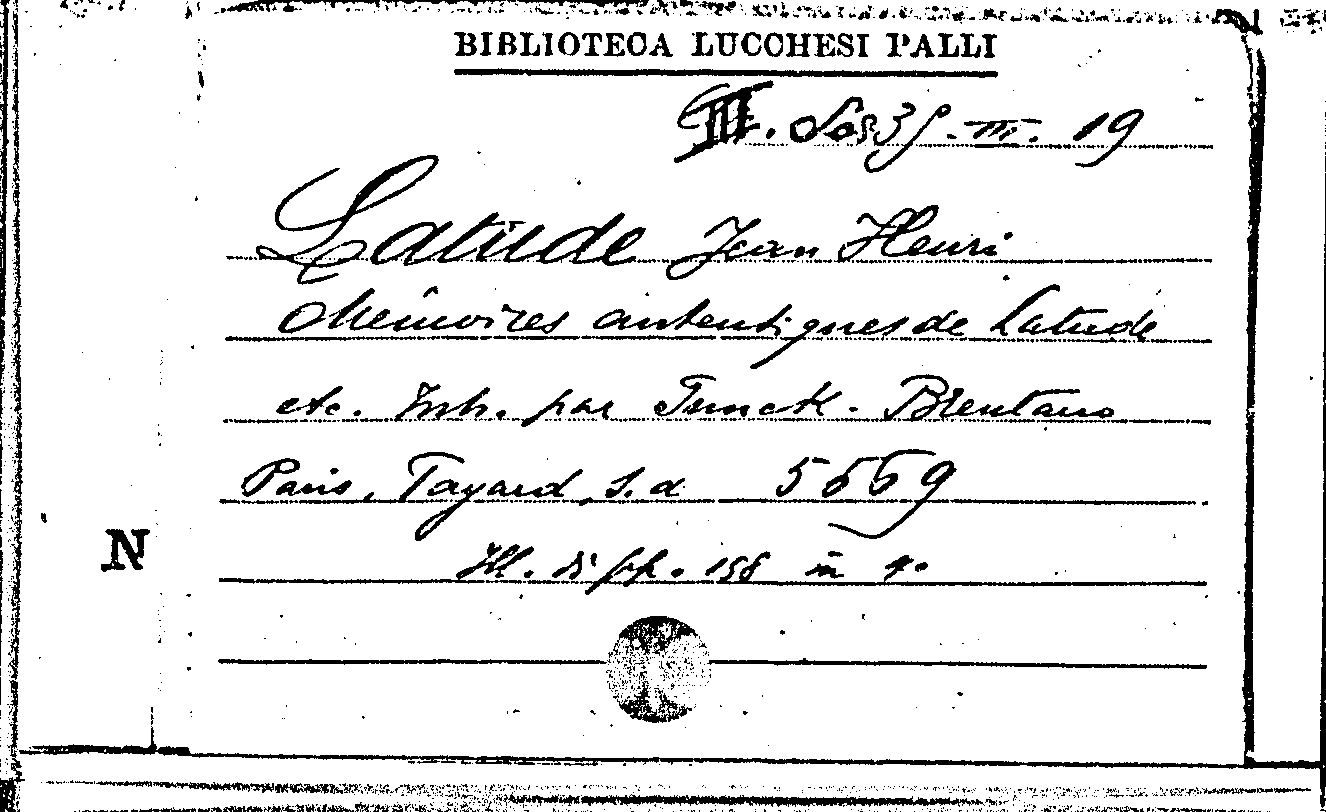 BIBLIOTECA LUCCHESI PALLI
III. 19
Latude Jean Henri
Mémoires autentiques de Latude
etc. par Funck-Brentano
Paris, Fayard, s.d 5669
N
Ill. di pp. 158 in 4°